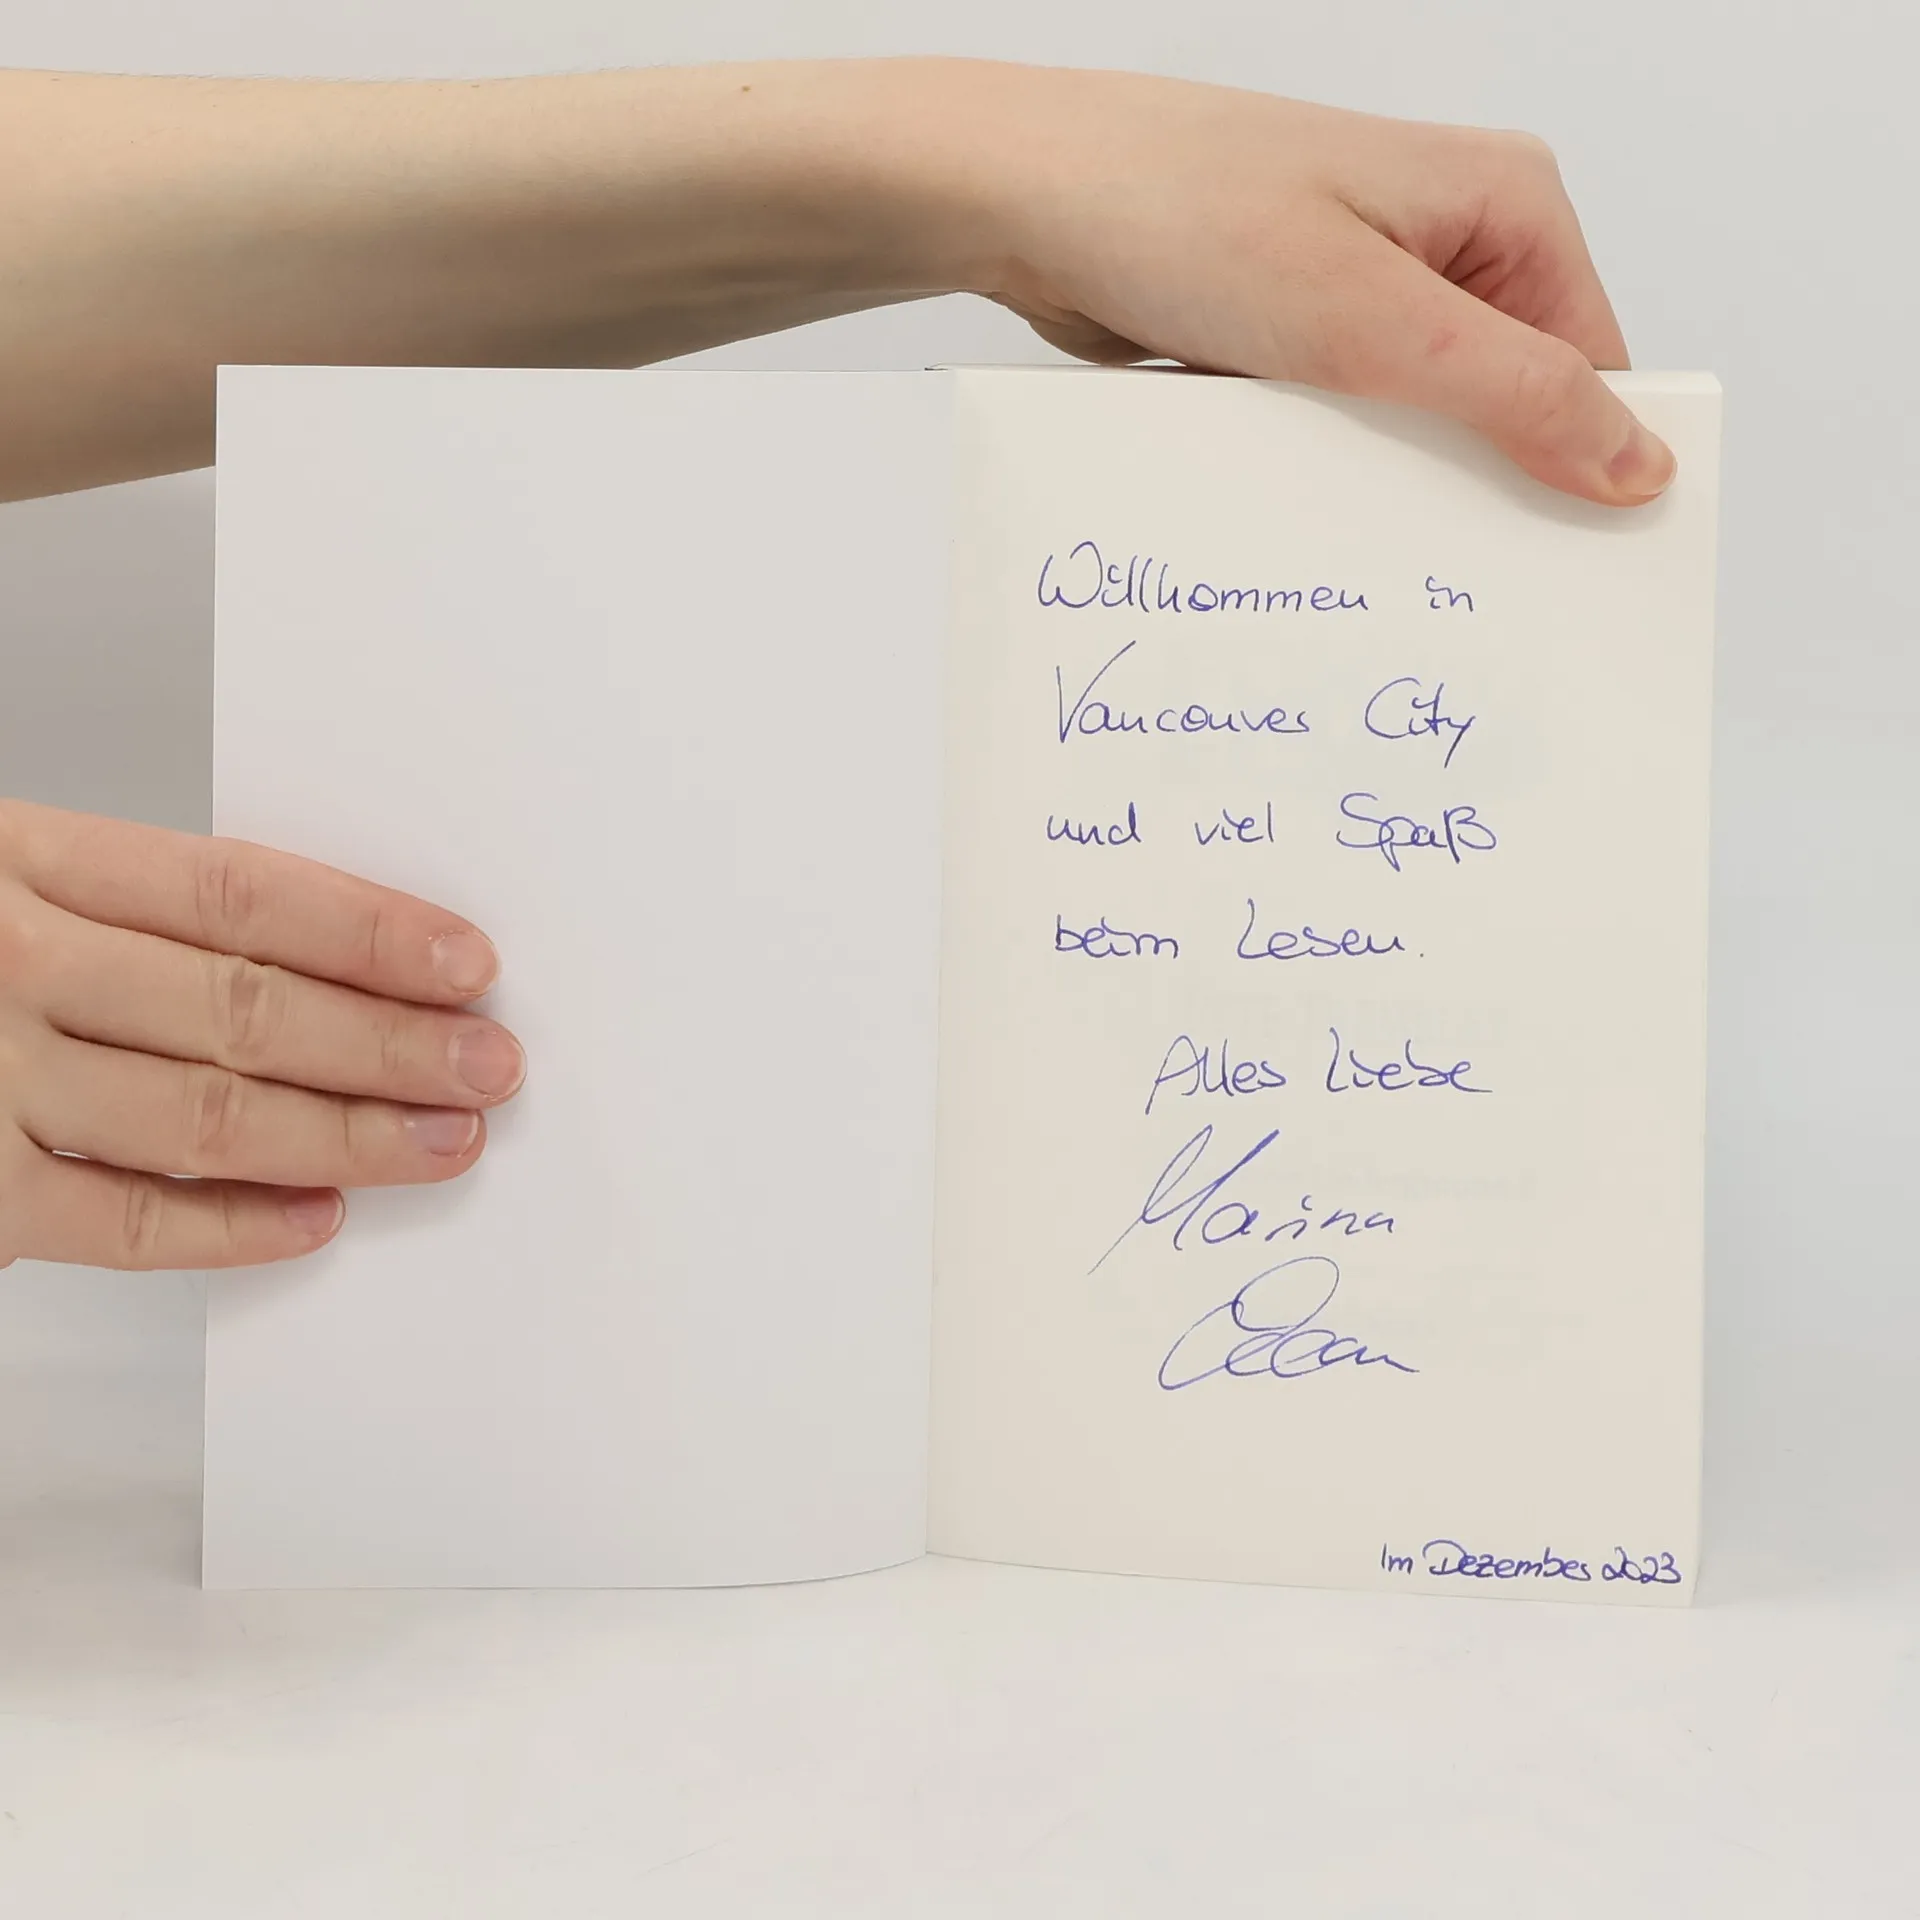 Willkommen in
Vancouver City
und viel Spaß
beim Lesen.
Alles Liebe
Marina
Im Dezember 2023